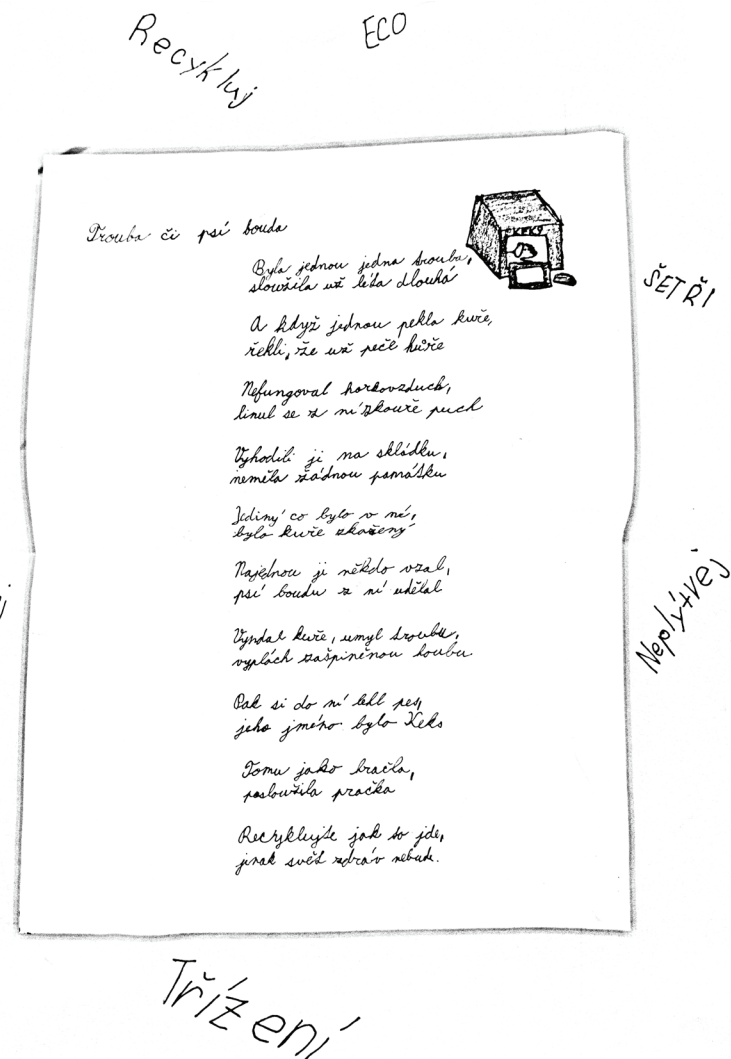 Recykluj
ECO
Trouba či psí bouda
KEKS
ŠETŘI
Byla jednou jedna trouba,
sloužila už léta dlouhá
A když jednou pekla kuře,
řekli, že už peče hůře
Nefungoval horkovzduch,
linul se z ní zkouře puch
Vyhodili ji na skládku,
neměla žádnou památku
Jediný co bylo v ní,
bylo kuře zkažený
Najednou ji někdo vzal,
psí boudu z ní udělal
Vyndal kuře, umyl troubu,
vyplách zašpiněnou houbu
Neplýtvej
Pak si do ní lehl pes,
jeho jméno bylo Keks
Tomu jako bračla,
posloužila pračka
Recyklujte jak to jde,
jinak svět zdráv nebude.
Třízení